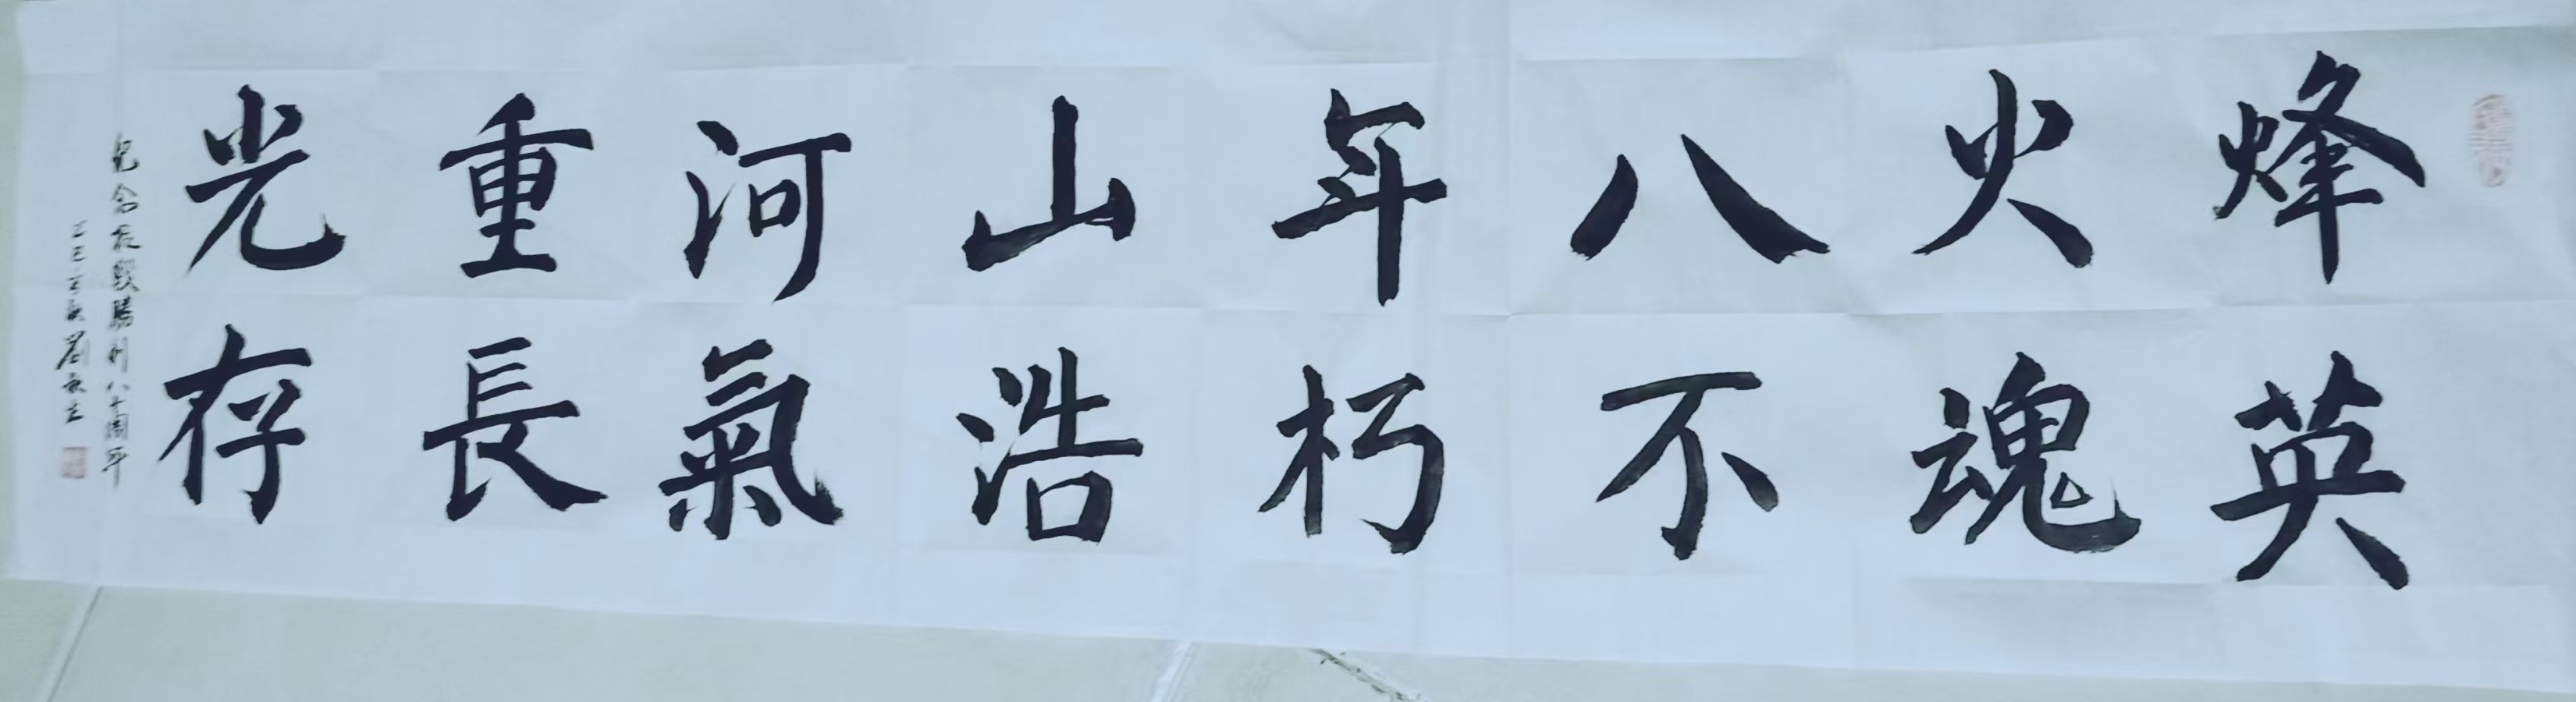 烽火八年山河重光
英魂不朽浩氣長存
紀念抗戰勝利八十周年
乙巳
劉